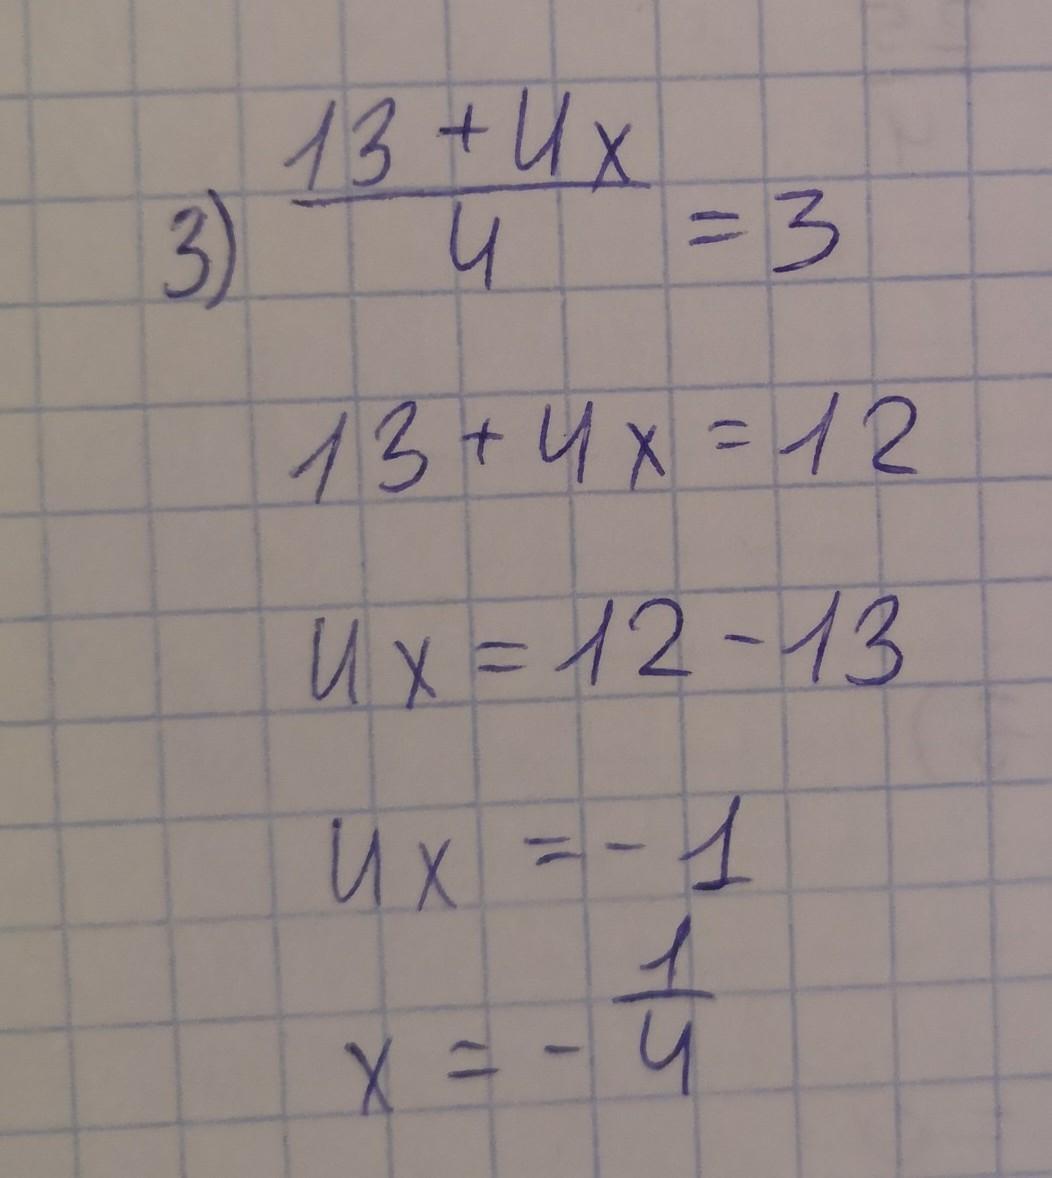 3) (13 + 4x)/4 = 3
13 + 4x = 12
4x = 12 - 13
4x = - 1
x = - 1/4